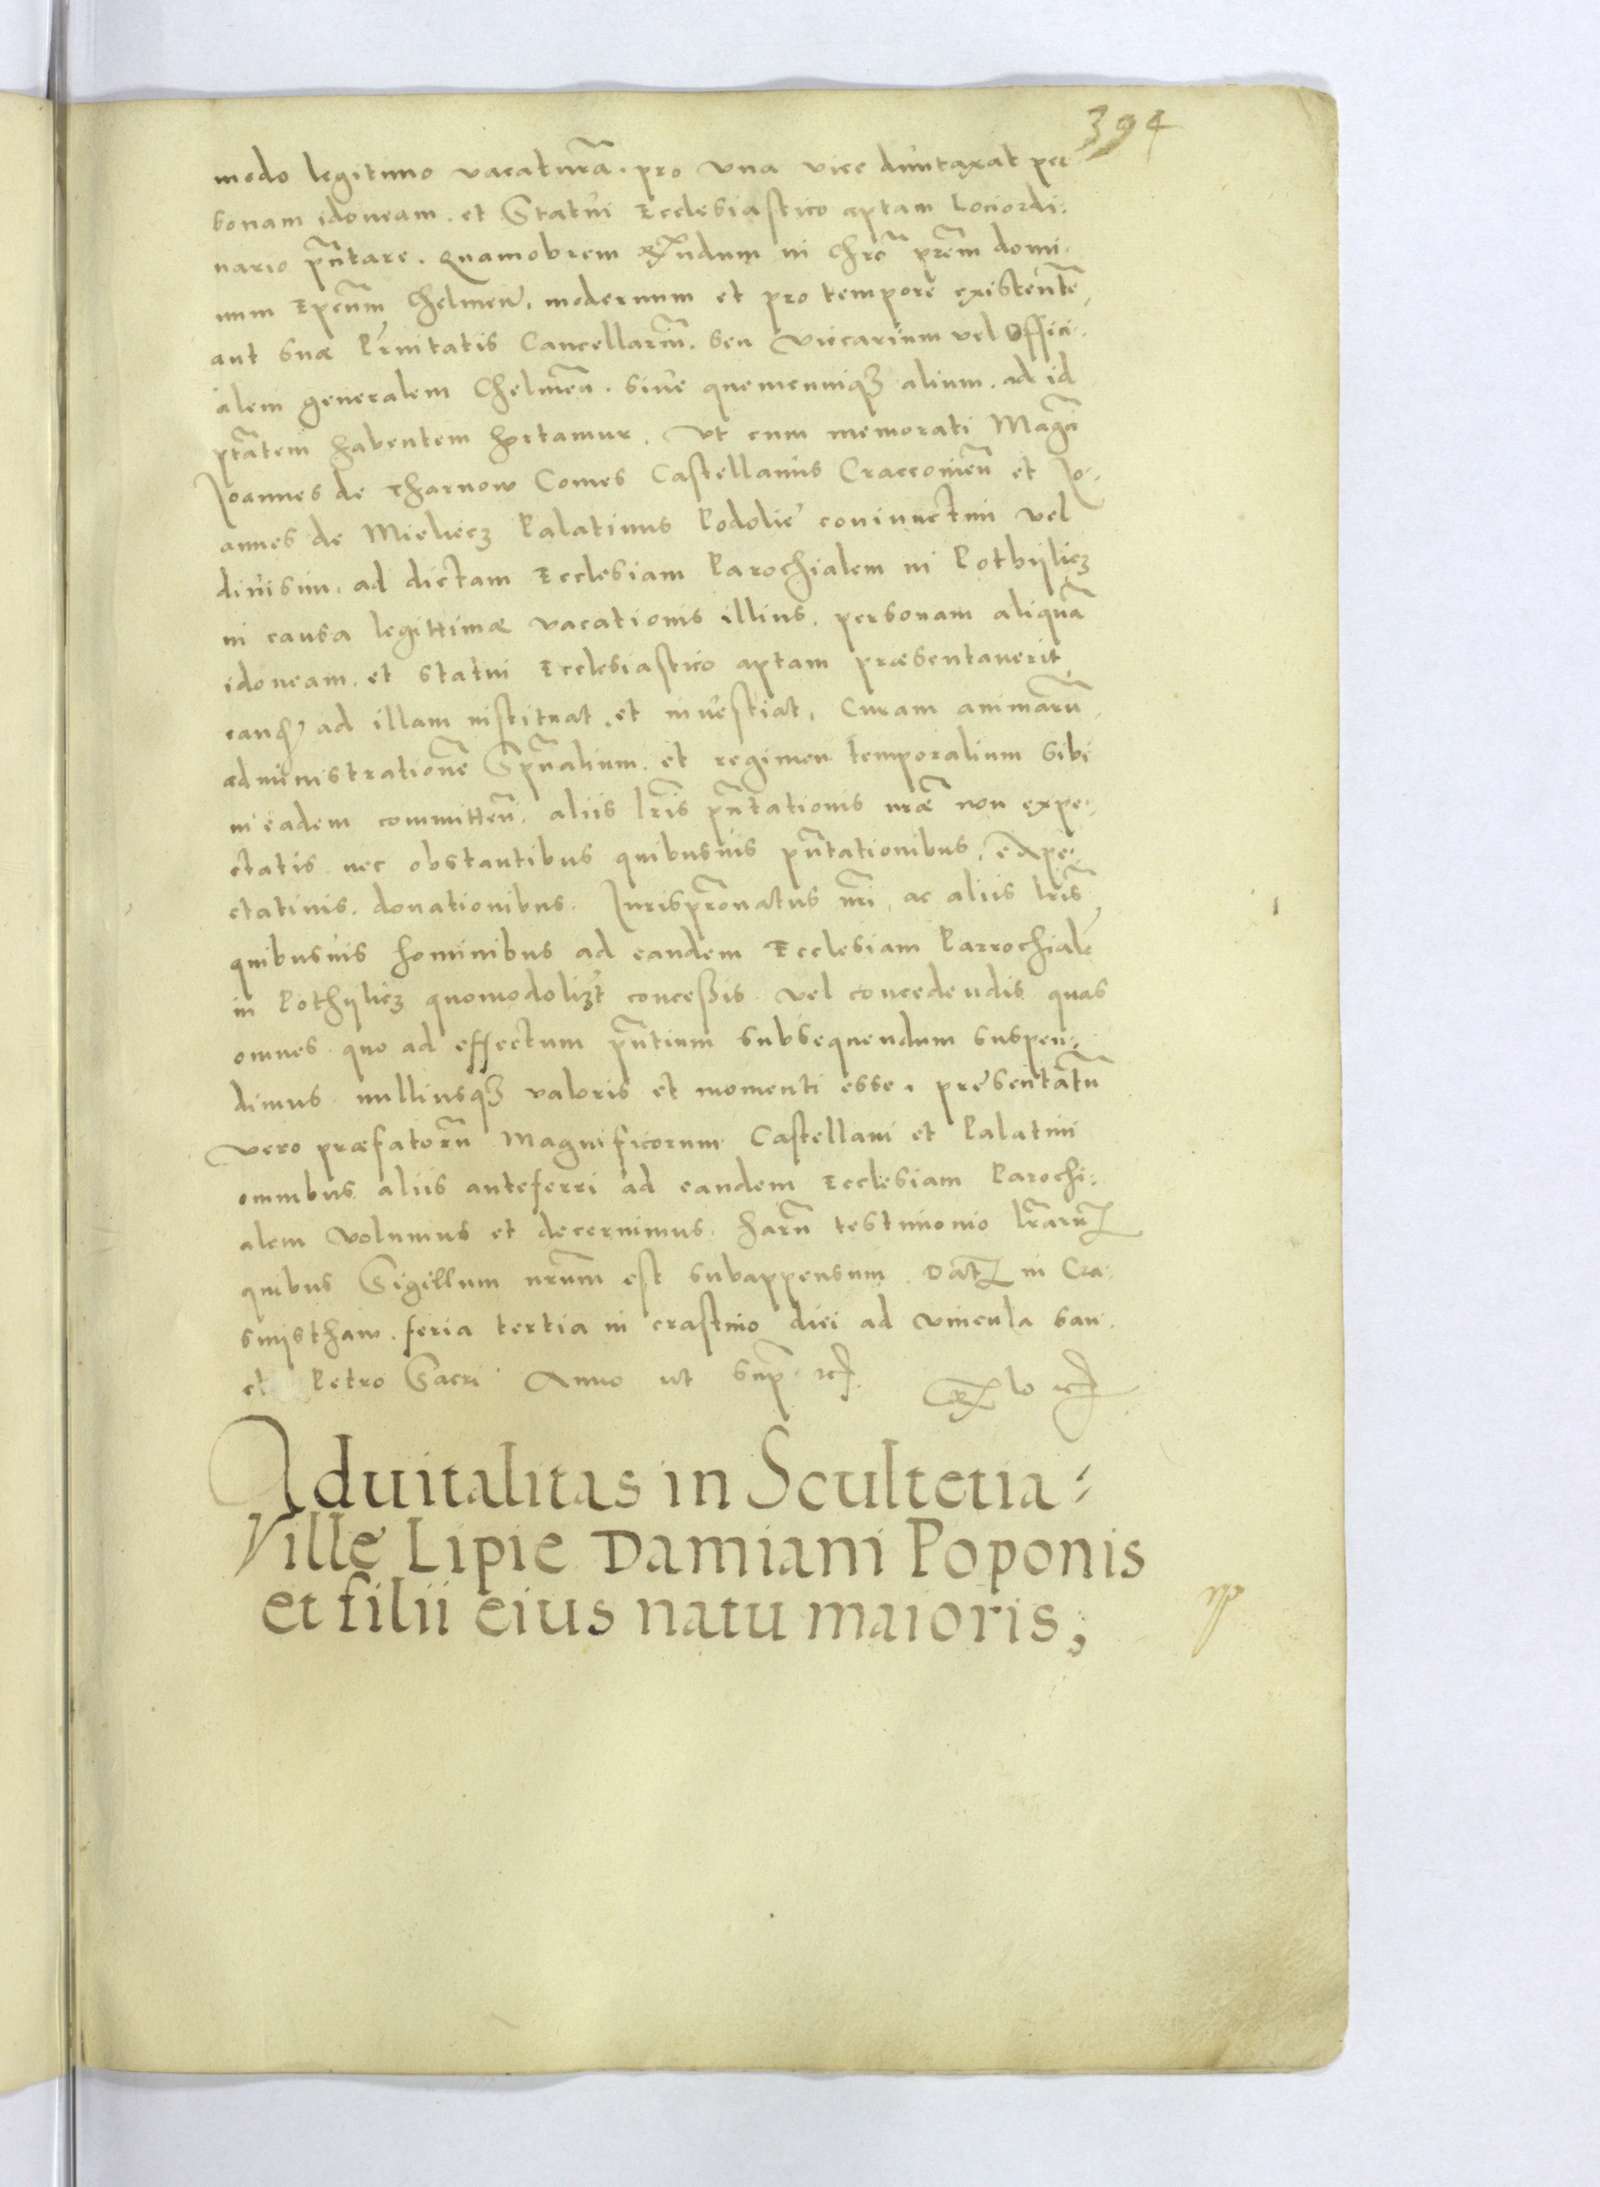 394
modo legitimo vacaturã. pro una vice duntaxat per
sonam idoneam. et Statui Ecclesiastico aptam Lociordi.
nario pñtare. Quamobrem Rñdum in chrõ prẽm domi.
num Epcũm Chelmeñ. modernum et pro tempore existentẽ
aut suæ Prnitatis Cancellariũ. seu vicecarium vel Offici.
alem generalem Chelmeñ. sive quemcumqз alium. ad id
ptãtem habentem hortamur. Ut cum memorati Magci
Joannes de Tharnow Comes Castellanus Craccovieñ et Jo.
annes de Mieliecz Palatinus Podolie coniunctim vel
divisim. ad dictam Ecclesiam Parochialem in Pothylicz
in causa legittimæ vacationis illius. personam aliquã
idoneam. et statui Ecclesiastico aptam præsentaverit
eandẽ ad illam instituat. et investiat. Curam animarũ
administrationẽ Spũalium. et regimen temporalium sibi
in eadem committeñ. aliis lr̃is pñtationis nræ̃ non expe.
ctatis. nec obstantibus quibusvis pñtationibus, expe.
ctativis. donationibus. Jurisprõnatus nri, ac aliis lr̃is
quibusvis hominibus ad eandem Ecclesiam Parrochialẽ
in Pothylicz quomodolizt concessis vel concedendis. quas
omnes quo ad effectum pñtium subsequendum suspen.
dimus nulliusqз valoris et momenti esse. presentatũ
vero præfatorũ Magnificorum Castellani et Palatini
omnibus aliis anteferri ad eandem Ecclesiam Parochi.
alem volumus et decernimus. harũ testimonio lr̃arũ
quibus Sigillum nrũm est subappensum. Datṽ in Cra.
snisthaw. feria tertia in crastino diei ad vincula san.
cti Petro Sacri. Anno ut Sup̃ rc
Aduitalitas in Scultetia
Ville Lipie Damiani Poponis
et filii eius natu maioris,